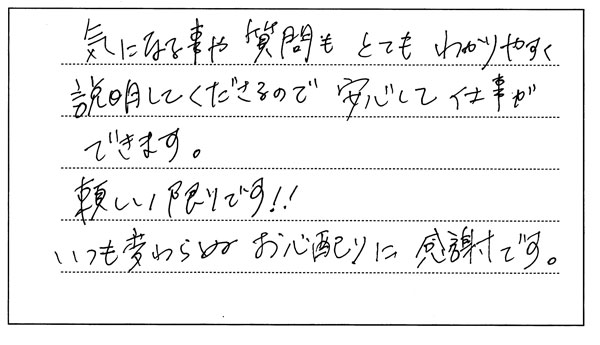 気になる事や質問もとてもわかりやすく
説明してくださるので安心して仕事が
できます。
頼しい限りです!!
いつも変わらぬお心配りに感謝です。